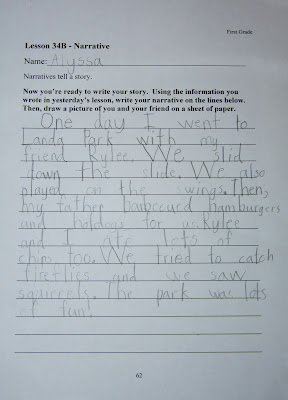 First Grade
Lesson 34B - Narrative
Name: Alyssa
Narratives tell a story.
Now you're ready to write your story. Using the information you
wrote in yesterday's lesson, write your narrative on the lines below.
Then, draw a picture of you and your friend on a sheet of paper.
One day I went to
Landa Park with my
friend Kylee. We slid
down the slide. We also
played on the swings. Then,
my father barbecued hamburgers
and hotdogs for us. Kylee
and I ate lots of
chips, too. We tried to catch
fireflies and we saw
squirrels. The park was lots
of fun!
62